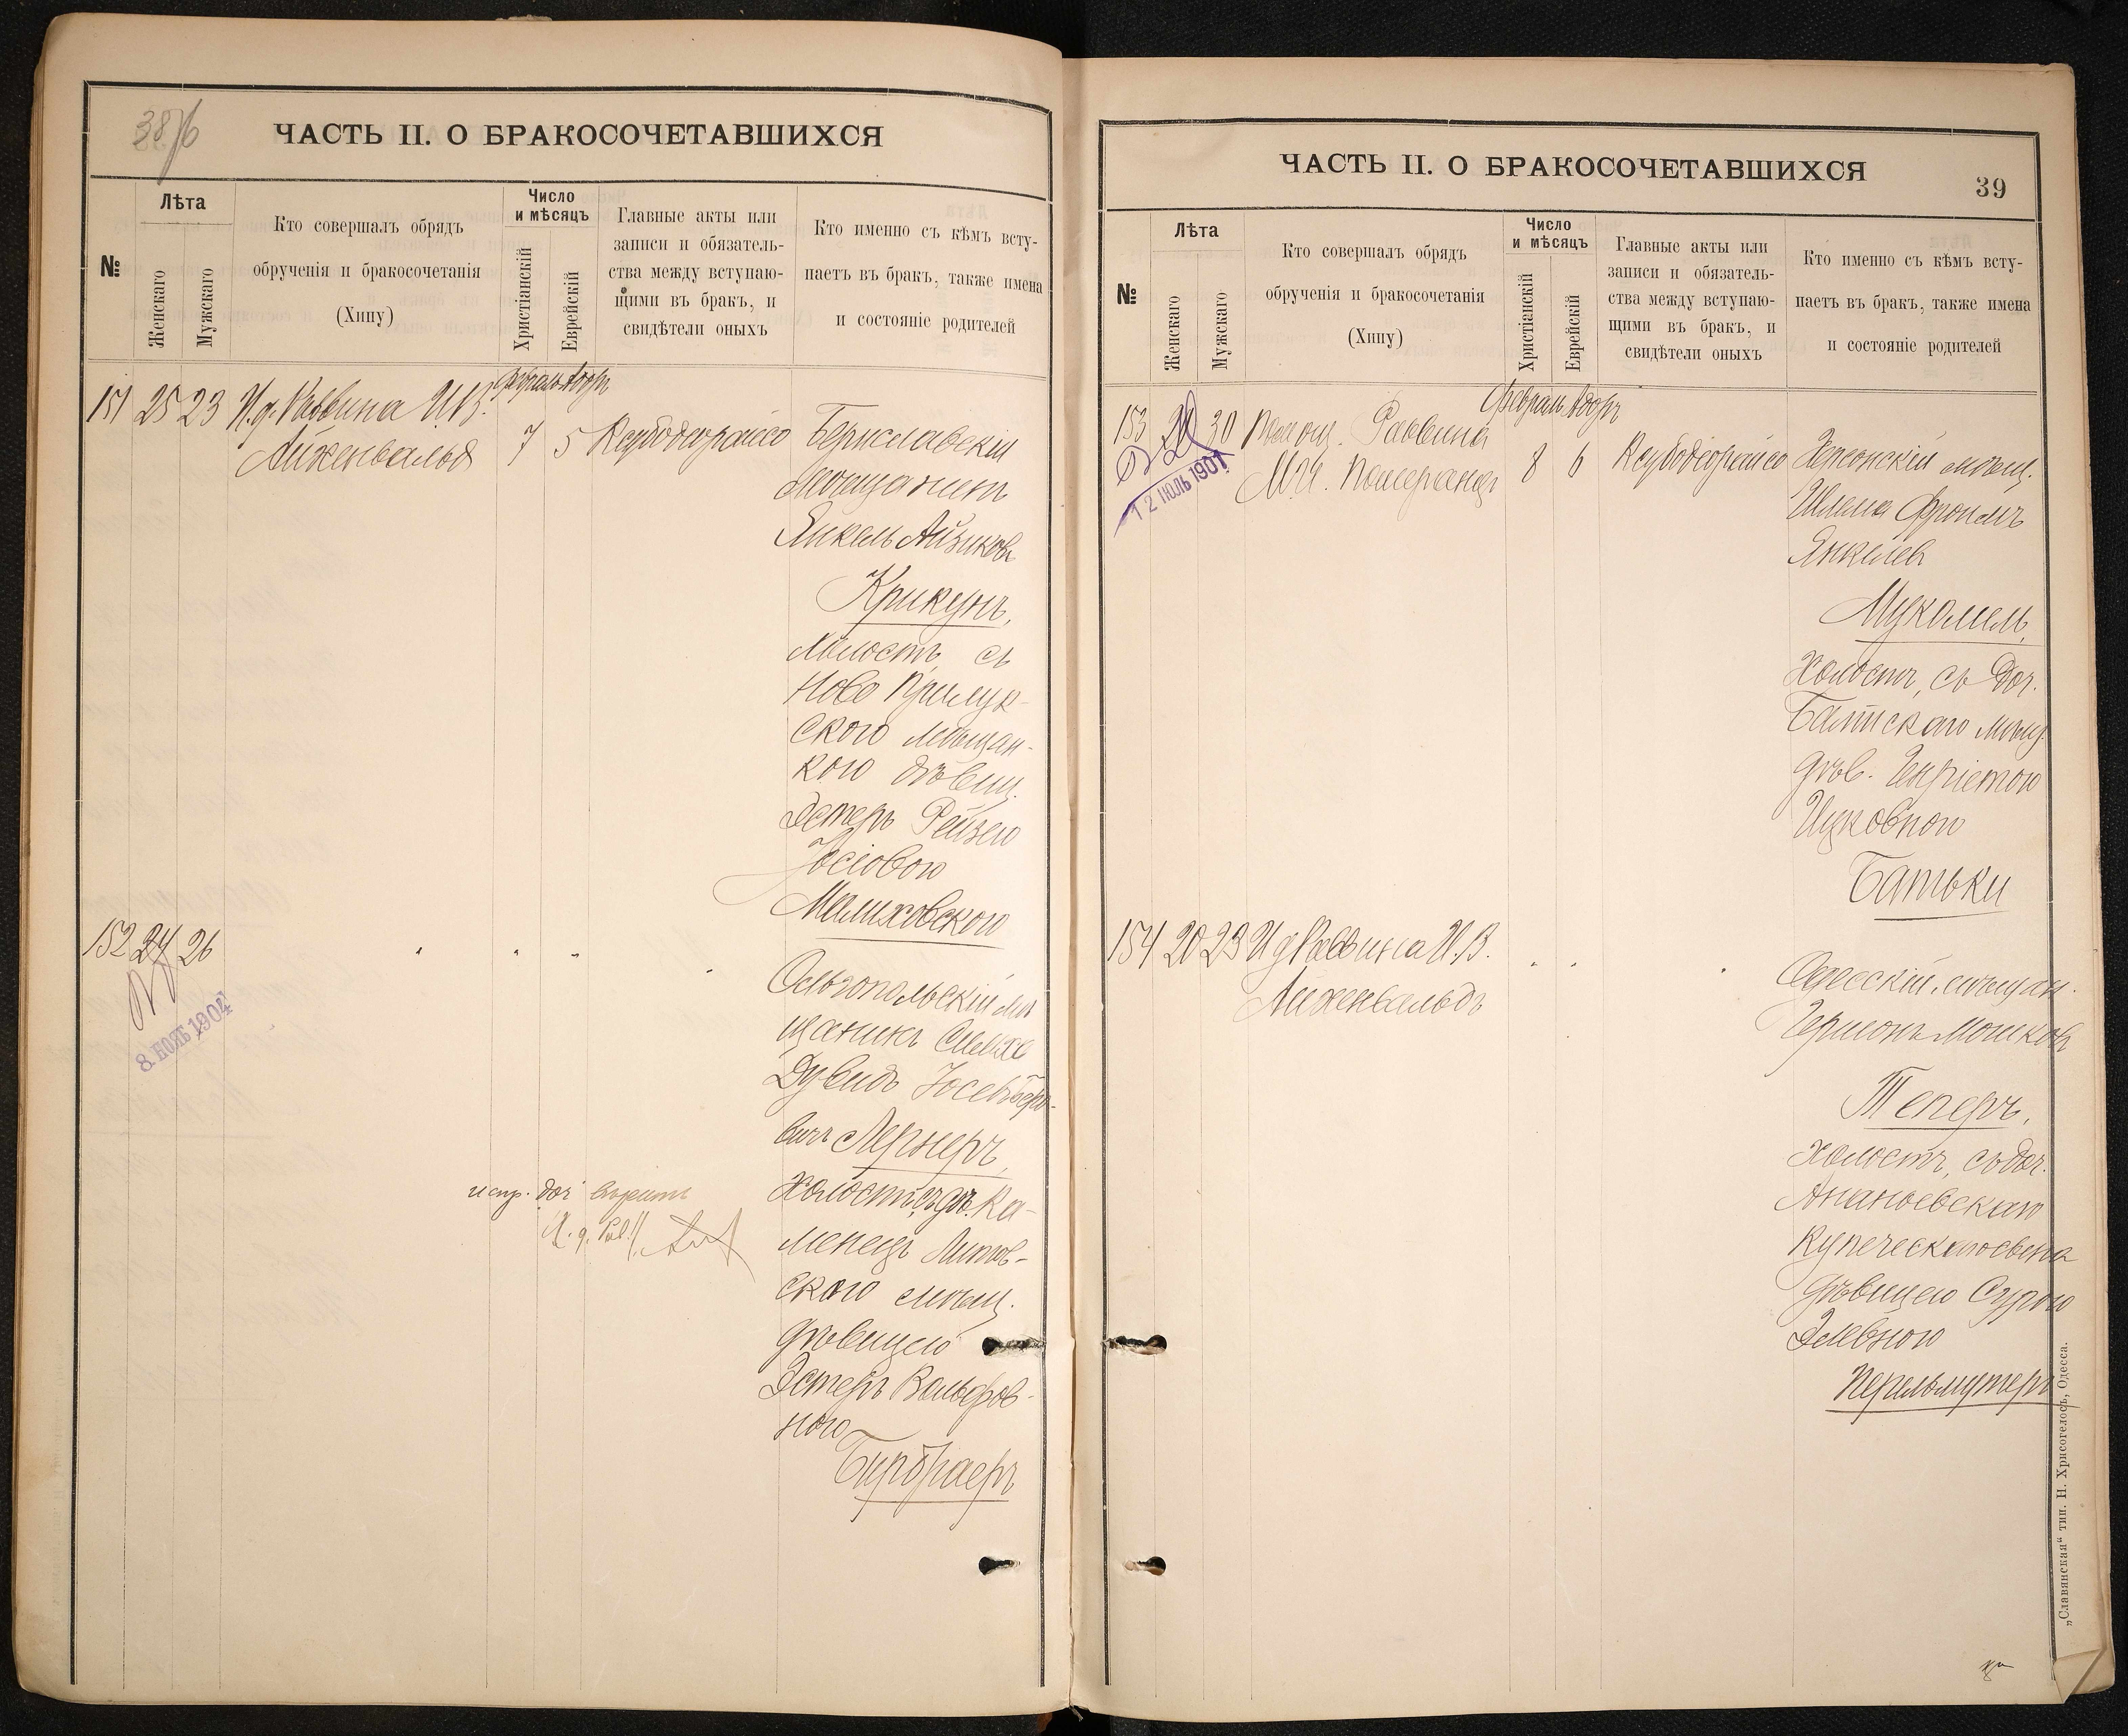 38
ЧАСТЬ II. О БРАКОСОЧЕТАВШИХСЯ
№
Лѣта
Женскаго
Мужскаго
Кто совершалъ обрядъ
обрученія и бракосочетанія
(Хипу)
Число
и мѣсяцъ
Христіанскій
Еврейскій
Главные акты или
записи и обязатель-
ства между вступаю-
щими въ бракъ, и
свидѣтели оныхъ
Кто именно съ кѣмъ всту-
паетъ въ бракъ, также имена
и состояніе родителей
Февраль Адоръ
151 25 23 И.д. Раввина И.В.
Айженвальдъ
7 5 Ксубодеорайсо
Бериславскій
мѣщанинъ
Янкель Айзиковъ
Крикунъ,
холостъ, съ
Ново Прилук-
скою мѣщан-
кою дѣвиц.
Эстеръ Рейзею
Іосіовою
Мелиховскою
152 24 26 " " " "
8. НОЯБ 1904
Ольгопольскій мѣ
щанинъ Симха
Дувидъ Іосевъ Беро-
вичъ Лернеръ,
холостъ, съ дѣ. Ка-
менецъ Литов-
скою мѣщ.
дѣвицею
Эстеръ Вольфов-
ною
Бирбраеръ
испр. доч вѣрить
И. д. Рав.
ЧАСТЬ II. О БРАКОСОЧЕТАВШИХСЯ
39
№
Лѣта
Женскаго
Мужскаго
Кто совершалъ обрядъ
обрученія и бракосочетанія
(Хипу)
Число
и мѣсяцъ
Христіанскій
Еврейскій
Главные акты или
записи и обязатель-
ства между вступаю-
щими въ бракъ, и
свидѣтели оныхъ
Кто именно съ кѣмъ всту-
паетъ въ бракъ, также имена
и состояніе родителей
Февраль Адоръ
153 30 Помощ. Раввина
М.И. Померанцъ
12 ІЮЛЬ 1907
8 6 Ксубодіорайсо
Херсонскій мѣщ.
Шлема Фроимъ
Янкелев
Мукомель,
холостъ, съ доч.
Балтскаго мѣщ.
дѣв. Генріетою
Ицковною
Батьки
154 20 23 И д Раввина И.В.
Айженвальдъ
" " "
Одесскій мѣщан.
Гершонъ Мошковъ
Теперъ,
холостъ, съ доч.
Ананьевскаго
купеческаго сына
дѣвицею Сурою
Элевною
Перельмутеръ
„Славянская“ тип. Н. Хрисогелосъ, Одесса.